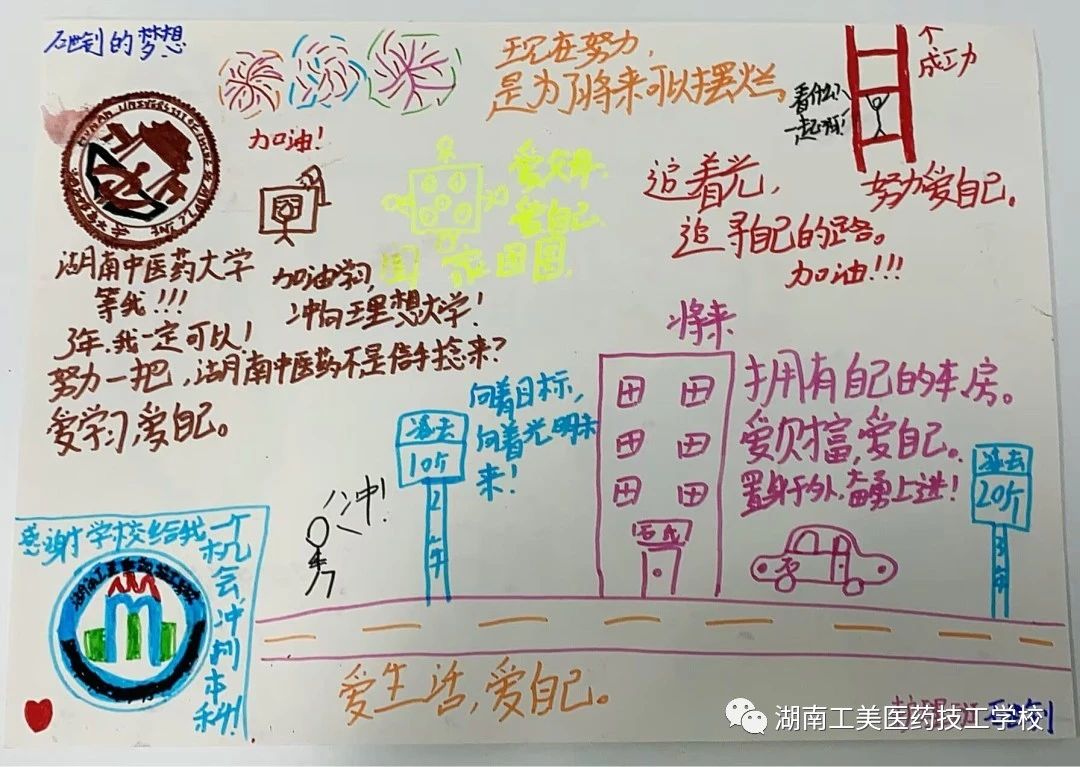 的梦想
现在努力，
是为了将来可以摆烂。
个
成功
看什么，
一起呀！
加油！
追着光，
追寻自己的路。
加油!!!
努力爱自己。
爱父母，
爱自己
家团圆
湖南中医药大学
等我!!!
3年，我一定可以！
加油学习，
冲向理想大学！
努力一把，湖南中医药不是信手捻来？
爱学习，爱自己。
向着目标，
向着光明未
来！
减去
10斤
2年
冲！
将来
拥有自己的车房。
爱财富，爱自己。
置身于外，奋勇上进！
减去
20斤
3年
感谢学校给我一个机会，冲刺本科！
爱生活，爱自己。
湖南工美医药技工学校